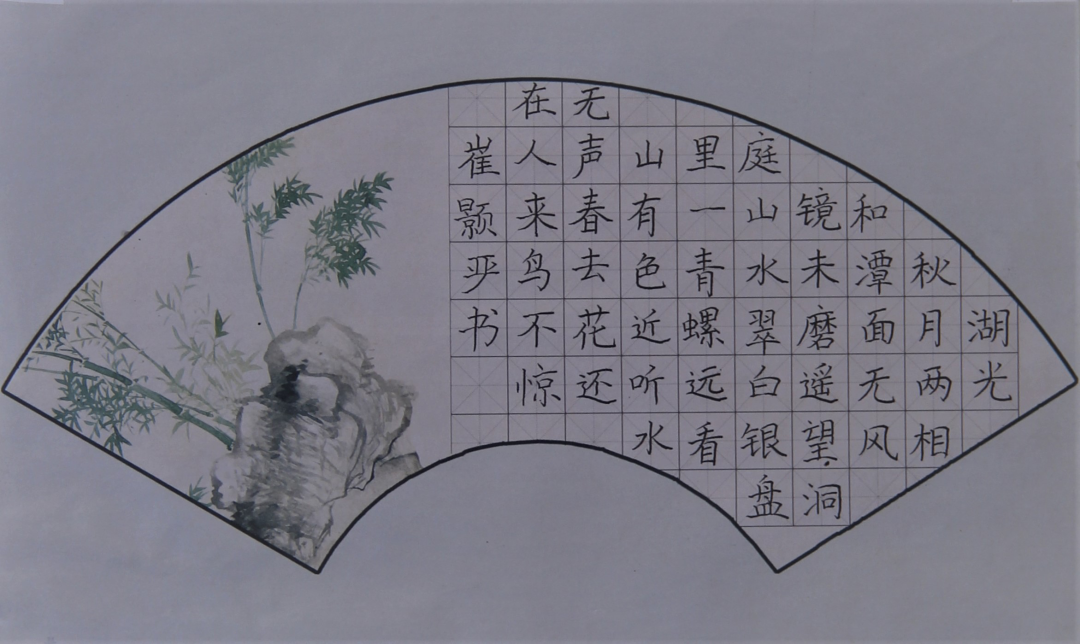 湖光
秋月两相
和潭面无风
镜未磨遥望洞
庭山水翠白银盘
里一青螺远看
山有色近听水
无声春去花还
在人来鸟不惊
崔颢严书